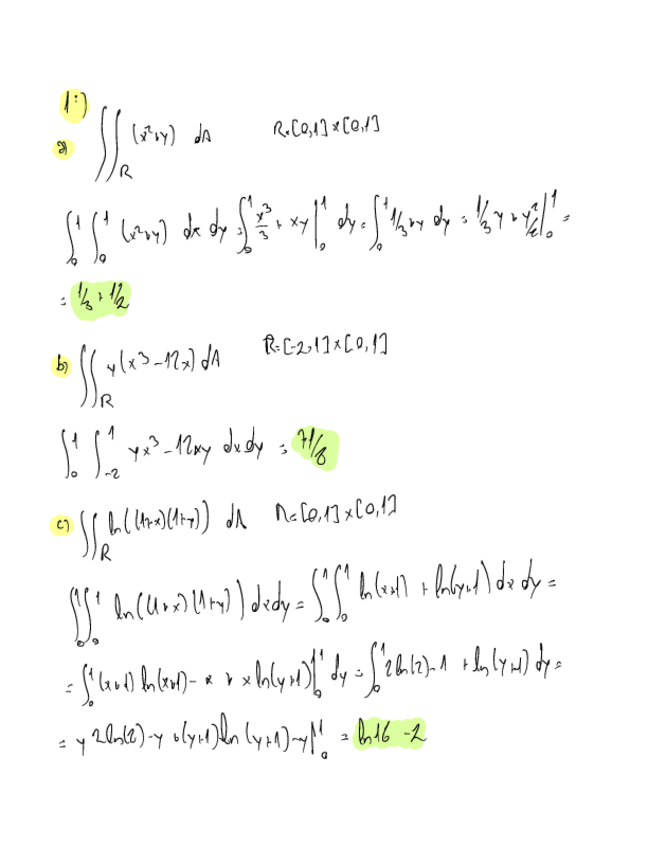 1:)
a) ∬_R (x²+y) dA R=[0,1]×[0,1]
∫₀¹ ∫₀¹ (x²+y) dx dy = ∫₀¹ x³/3 + xy |₀¹ dy = ∫₀¹ 1/3+y dy = 1/3 y + y²/2 |₀¹ =
= 1/3 + 1/2
b) ∬_R y(x³-12x) dA R=[-2,1]×[0,1]
∫₀¹ ∫₋₂¹ yx³-12xy dx dy =
c) ∬_R ln((1+x)(1+y)) dA R=[0,1]×[0,1]
∫₀¹∫₀¹ ln((1+x)(1+y)) dx dy = ∫₀¹∫₀¹ ln(x+1) + ln(y+1) dx dy =
= ∫₀¹ (x+1) ln(x+1) - x + x ln(y+1) |₀¹ dy = ∫₀¹ 2ln(2)-1 + ln(y+1) dy =
= y 2ln(2)-y +(y+1)ln(y+1)-y |₀¹ = ln16 -2